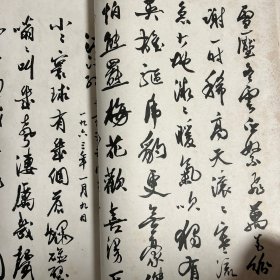 雪壓冬雲白絮飛萬花紛
謝一时稀高天滚滚寒流
急大地微微暖氣吹独有
英雄驅虎豹更無豪傑
怕熊羆梅花歡喜漫天
一九六三年一月九日
小小寰球有幾個蒼蠅碰壁
嗡嗡叫幾聲凄厲幾聲